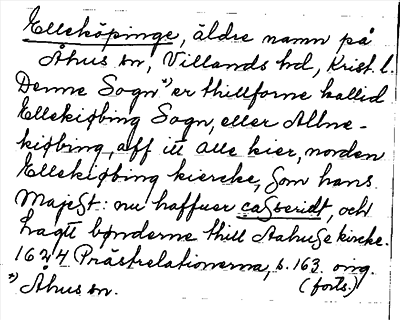 Elleköpinge, äldre namn på
Åhus sn, Villands hd, Krist. l.
Denne Sogn*) er thillforne kallid
Ellekiøbing Sogn, eller Allne-
kiøbing, aff itt alle kier, norden
Ellekiøbing kiercke, som hans
Majest: nu haffuer casseridt, och
Lagtt bønderne thill Aahuse kircke.
1624 Prästrelationerna, s. 163. omg.
*) Åhus sn. (forts.)